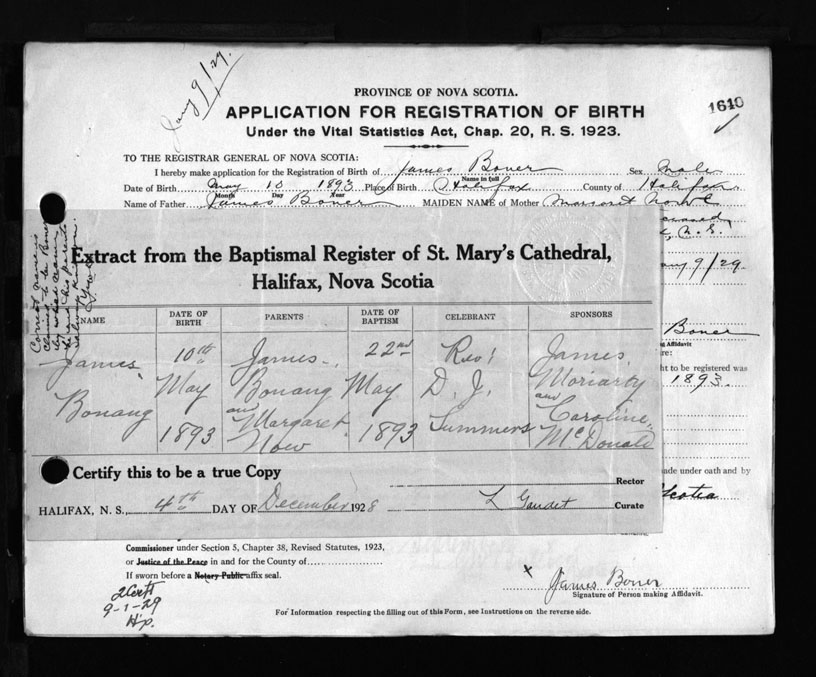 Jany 9/29.
PROVINCE OF NOVA SCOTIA.
APPLICATION FOR REGISTRATION OF BIRTH
1610
Under the Vital Statistics Act, Chap. 20, R. S. 1923.
TO THE REGISTRAR GENERAL OF NOVA SCOTIA:
I hereby make application for the Registration of Birth of James Boner Sex Male
Name in full
Date of Birth May 10 1893 Place of Birth Halifax County of Halifax
Month Day Year
Name of Father James Boner MAIDEN NAME of Mother Margaret Nowe
N.S.
Extract from the Baptismal Register of St. Mary's Cathedral,
Halifax, Nova Scotia
9/29
Correct name is
claimed to be Boner
NAME DATE OF BIRTH PARENTS DATE OF BAPTISM CELEBRANT SPONSORS
James 10th James 22nd Rev. James
Bonang May Bonang May D. J. Moriarty
and and
1893 Margaret 1893 Summers Caroline
Now McDonald
Boner
Affidavit
re:
ht to be registered was
1893.
Certify this to be a true Copy
Rector
ade under oath and by
HALIFAX, N. S., 4th DAY OF December 1928 L Gaudet Curate
Scotia
Commissioner under Section 5, Chapter 38, Revised Statutes, 1923,
or Justice of the Peace in and for the County of
If sworn before a Notary Public affix seal.
2 Cert
9-1-29
H.p.
x James Boner
Signature of Person making Affidavit.
For Information respecting the filling out of this Form, see Instructions on the reverse side.